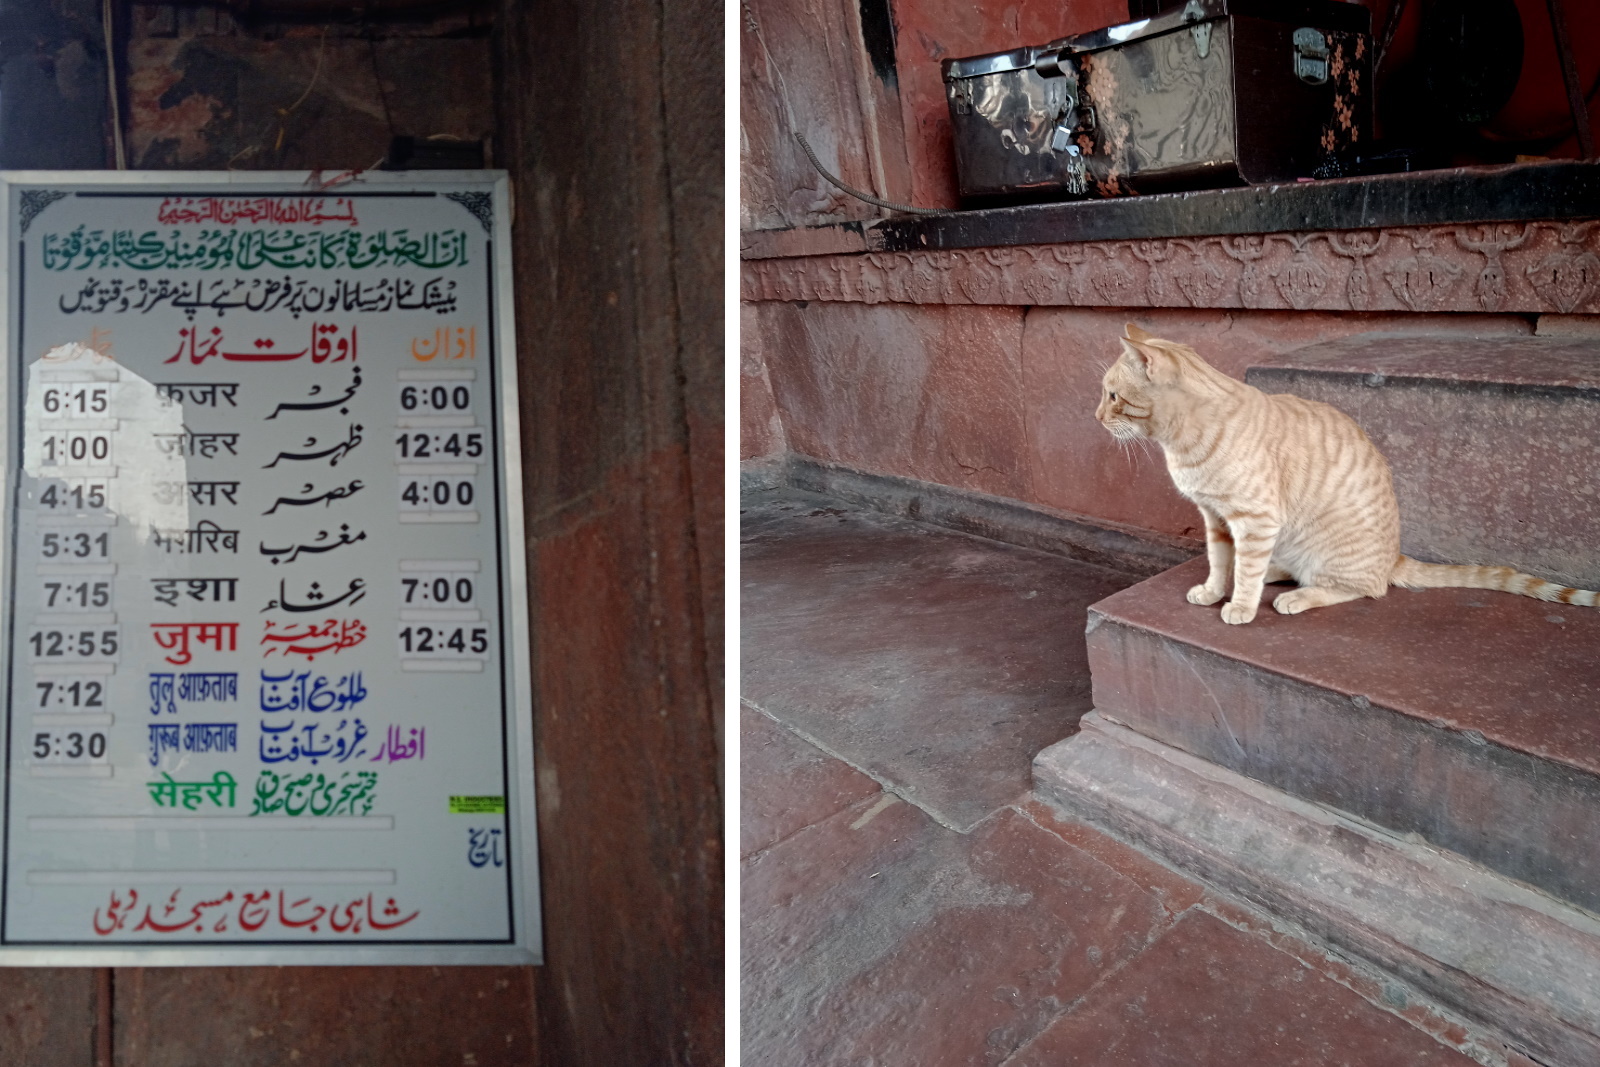 بسم الله الرحمن الرحيم
اِنَّ الصَّلٰوةَ كَانَتْ عَلَى الْمُؤْمِنِيْنَ كِتَابًا مَّوْقُوْتًا
بیشک نماز مسلمانوں پر فرض ہے اپنے مقررہ وقتوں میں
اذان اوقات نماز
6:15 फ़जर فجر 6:00
1:00 ज़ोहर ظہر 12:45
4:15 असर عصر 4:00
5:31 मग़रिब مغرب
7:15 इशा عشاء 7:00
12:55 जुमा خطبہ جمعہ 12:45
7:12 तुलू आफ़ताब طلوع آفتاب
5:30 ग़ुरूब आफ़ताब غروب آفتاب افطار
सेहरी ختم سحری و صبح صادق
تاریخ
شاہی جامع مسجد دہلی